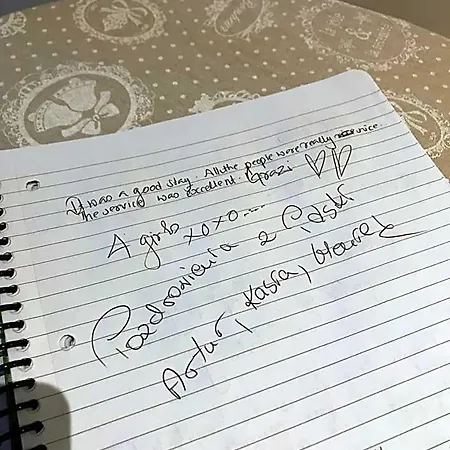 It was a good stay. All the people were really nice.
The service was excellent. Grazi
A girls xoxo....
Pozdrowienia z Polski
Artur, Kasra,